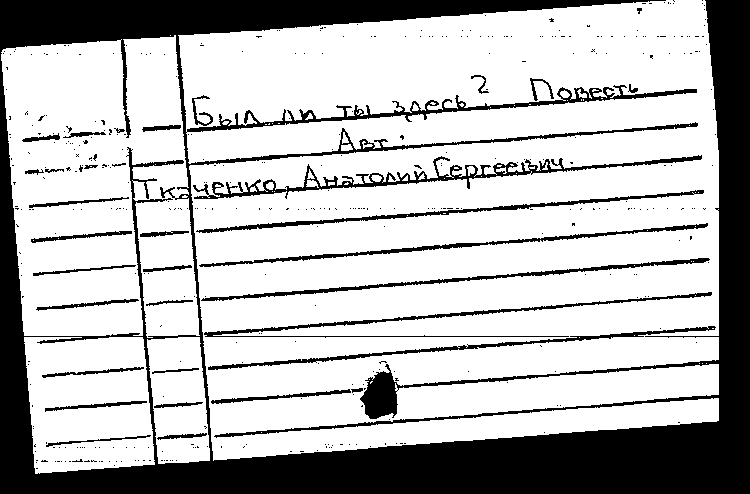 Был ли ты здесь? Повесть
Авт:
Ткаченко, Анатолий Сергеевич.